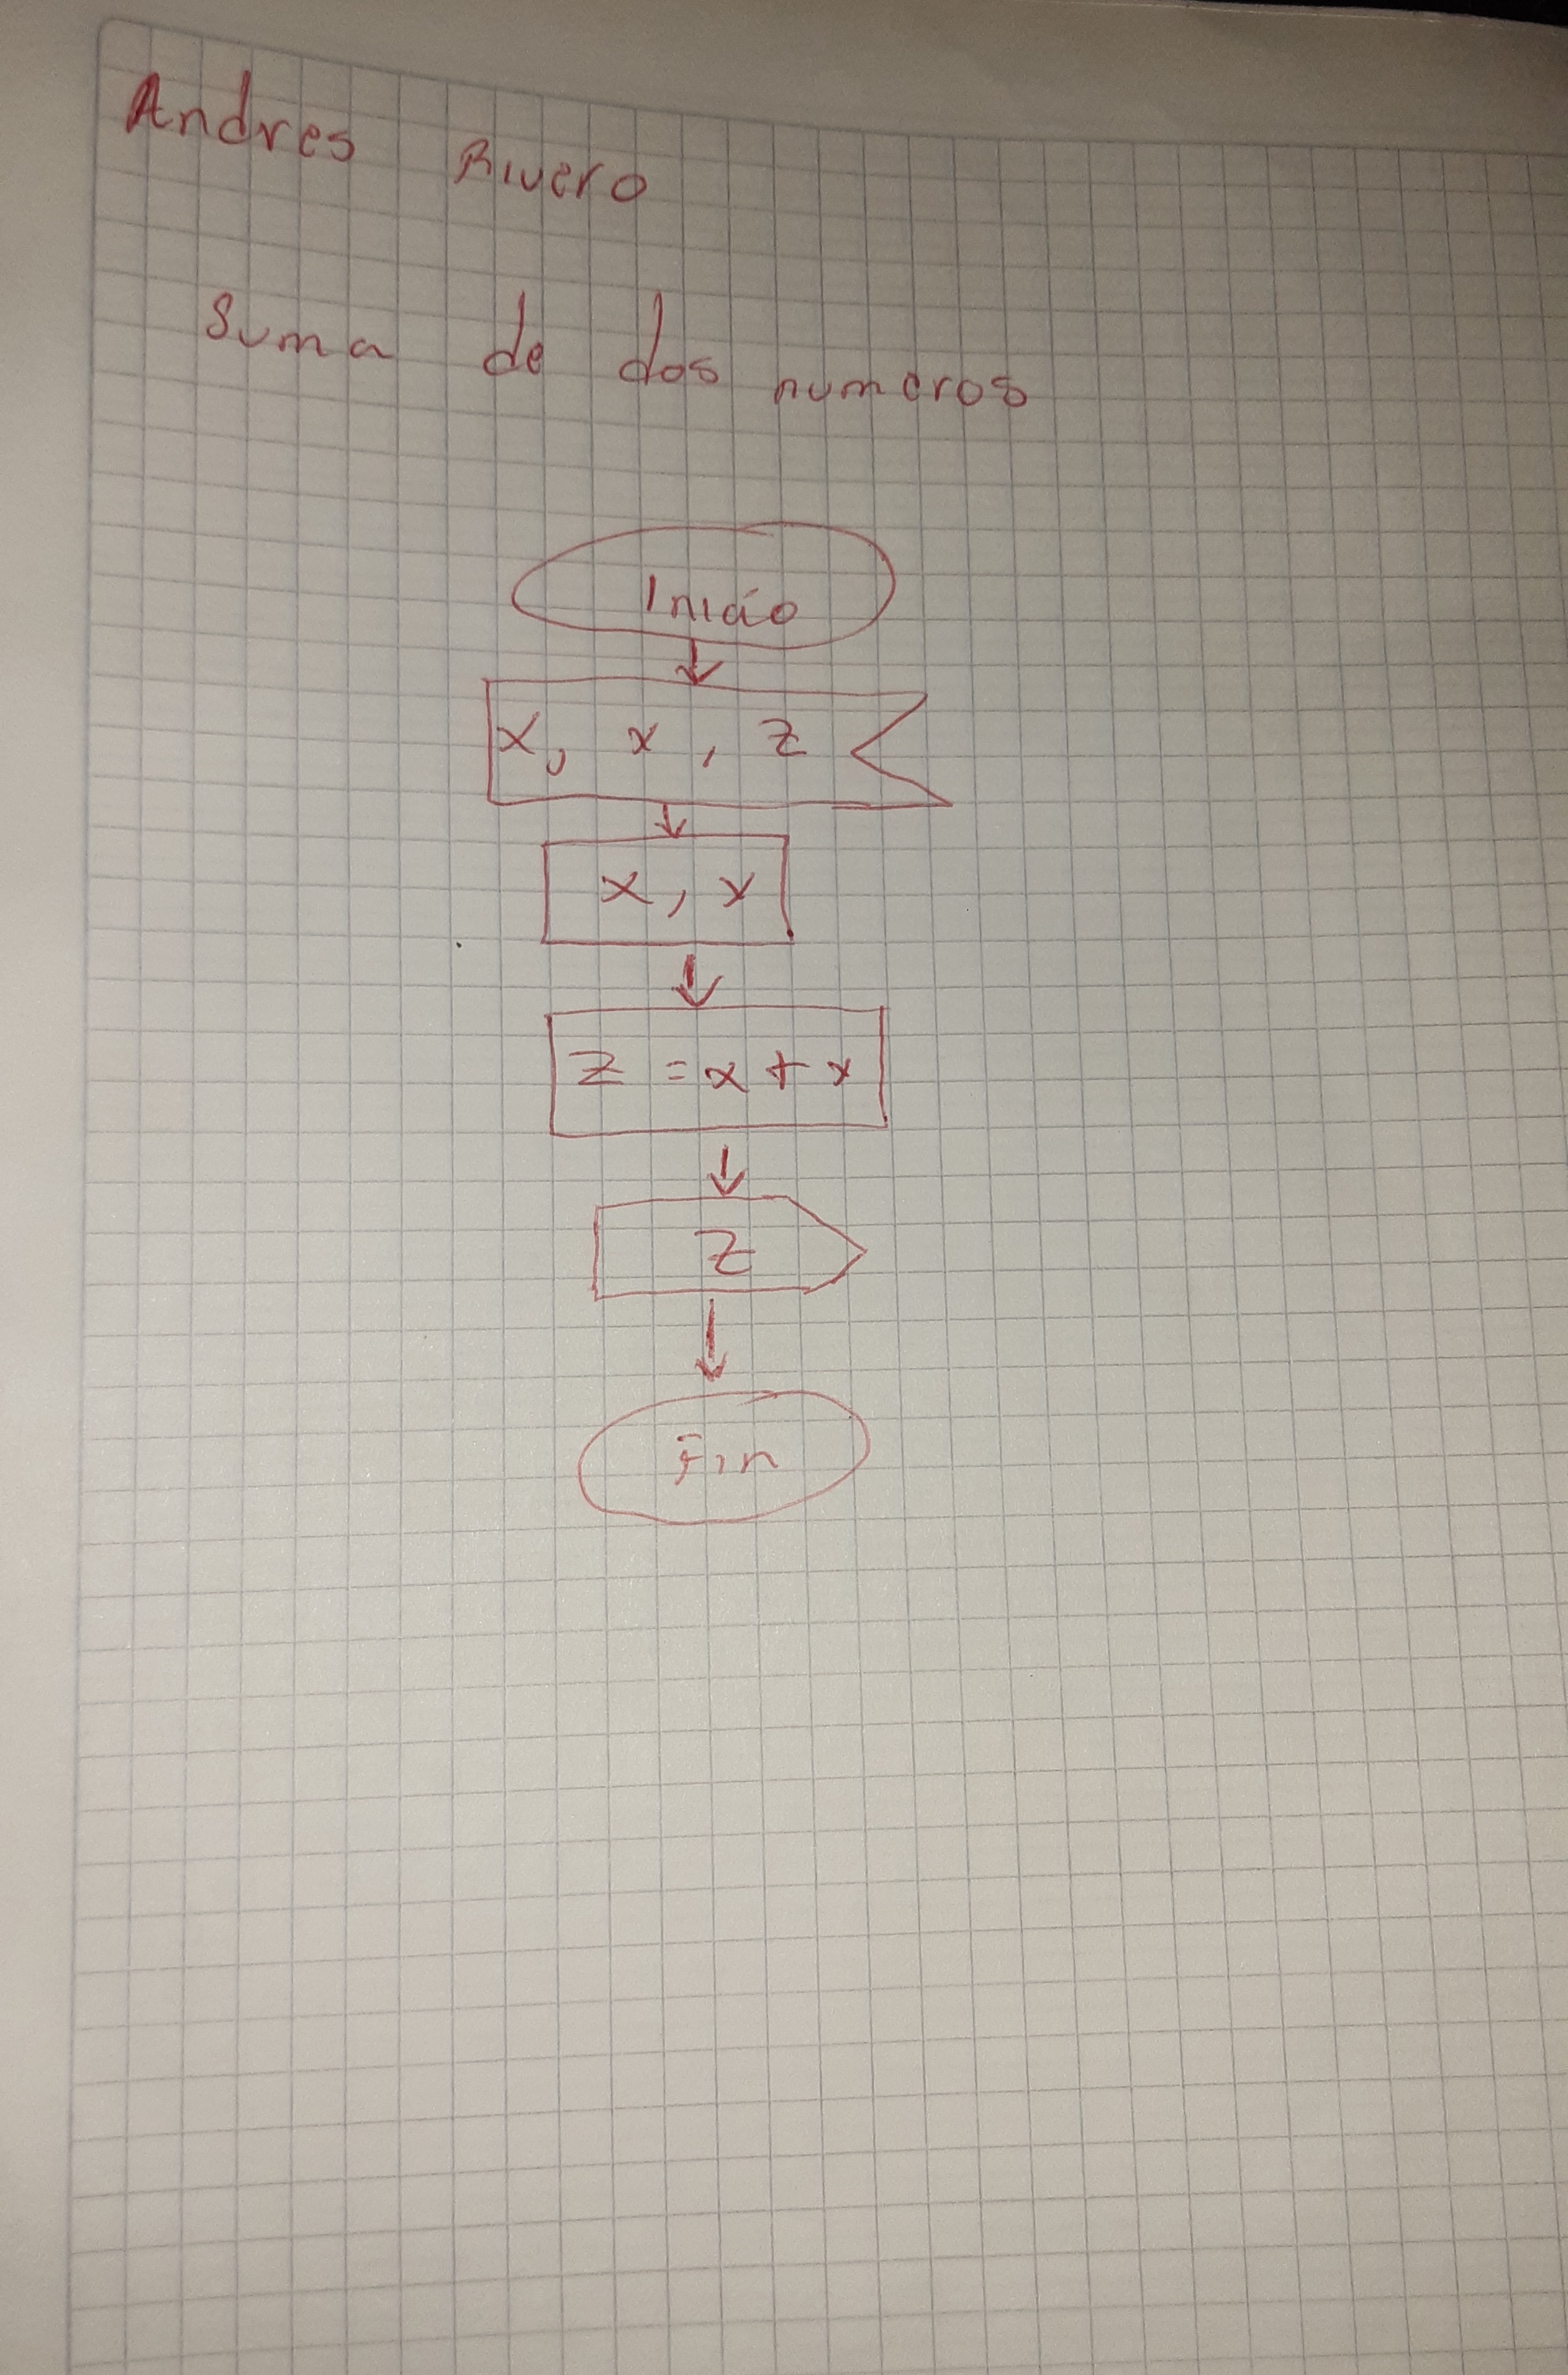 Andres Rivero
Suma de dos numeros
Inicio
X, x, z
x, x
z = x + x
z
Fin